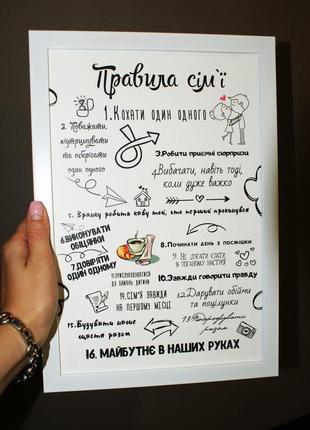 Правила сім'ї
1.Кохати один одного
2. Поважати,
підтримувати
та оберігати
один одного
3.Робити приємні сюрпризи
4.Вибачати, навіть тоді,
коли дуже важко
5. Зранку робить каву той, хто перший прокинувся
6.ВИКОНУВАТИ
ОБІЦЯНКИ
7.ДОВІРЯТИ
ОДИН ОДНОМУ
8.Починати день з посмішки
9. НЕ ЛЯГАТИ СПАТИ
В ПОГАНОМУ НАСТРОЇ
10.Завжди говорити правду
11.ПРИСЛУХОВУВАТИСЯ
ДО БАЖАНЬ ДИТИНИ
12.Дарувати обійми
та поцілунки
13.Подорожувати
разом
14.СІМ'Я ЗАВЖДИ
НА ПЕРШОМУ МІСЦІ
15.Будувати наше
щастя разом
16. МАЙБУТНЄ В НАШИХ РУКАХ